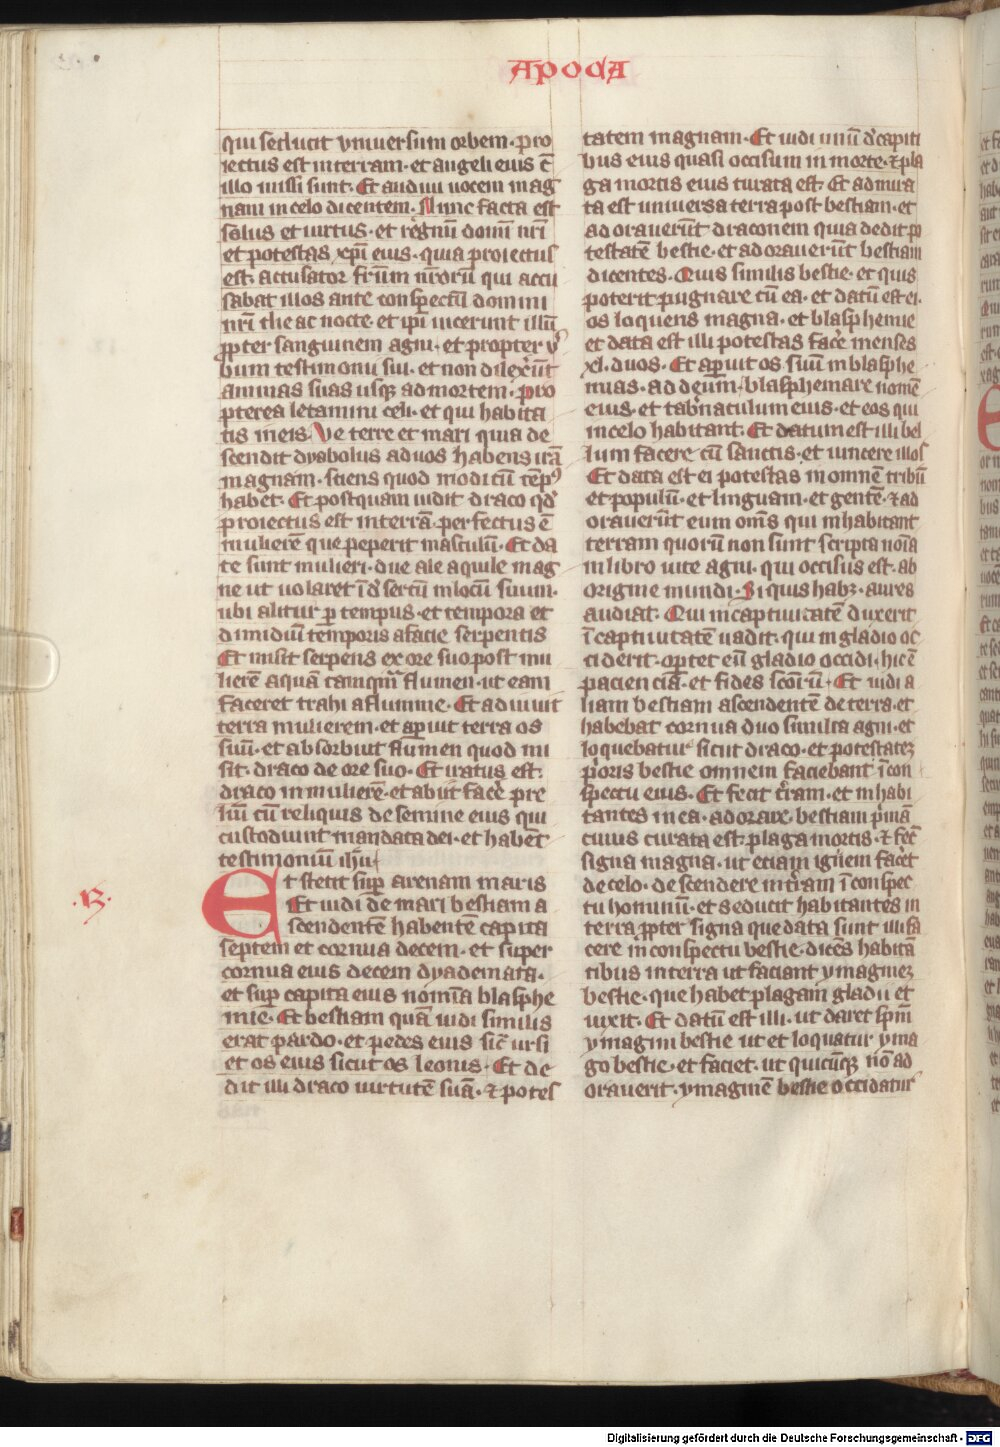 Apoca
qui seducit vniuersum orbem. pro
iectus est in terram. et angeli eius cū
illo missi sunt. Et audiui uocem mag
nam in celo dicentem. Nunc facta est
salus et uirtus. et regnū domī nrī
et potestas xpī eius. quia proiectus
est. accusator frūm nrōrū qui accu
sabat illos ante conspectū domini
nrī die ac nocte. et ipī uicerunt illū
ꝓpter sanguinem agni. et propter v̾
bum testimonii sui. et non dilexer̄t
animas suas usqꝫ ad mortem. pro
pterea letamini celi. et qui habita
tis in eis. Ve terre et mari quia de
scendit dyabolus ad uos habens irā
magnam. sciens quod modicū tēpꝰ
habet. Et postquam uidit draco qd̾
proiectus est in terrā. persecutus ē
mulierē que peperit masculū. Et da
te sunt mulieri. due ale aquile mag
ne ut uolaret ī d̾sertū in locū suum.
ubi alitur ꝑ tempus. et tempora et
dimidiū temporis a facie serpentis
Et misit serpens ex ore suo post mu
lierē aquā tamqm̄ flumen. ut eam
faceret trahi a flumine. Et adiuuit
terra mulierem. et apuit terra os
suū. et absorbuit flumen quod mi
sit. draco de ore suo. Et iratus est.
draco in mulierē. et abiit face̾ pre
liū cū reliquis de semine eius qui
custodiunt mandata dei. et habēt
testimoniū ihū
.13.
Et stetit suꝑ arenam maris
Et uidi de mari bestiam a
scendentē habentē capita
septem et cornua decem. et super
cornua eius decem dyademata.
et suꝑ capita eius nomīa blasphe
mie. Et bestiam quā uidi similis
erat pardo. et pedes eius sic̄ ursi
et os eius sicut os leonis. Et de
dit illi draco uirtutē suā. ⁊ potes
tatem magnam. Et uidi unū d̾ capiti
bus eius quasi occisum in morte. ⁊ pla
ga mortis eius curata est. Et admira
ta est uniuersa terra post bestiam. et
adorauerūt draconem quia dedit po
testatē bestie. et adorauerūt bestiam
dicentes. Quis similis bestie. et quis
poterit pugnare cū ea. et datū est ei.
os loquens magna. et blasphemie
et data est illi potestas face̾ menses
xl. duos. Et apuit os suū in blasphe
mias. ad deum. blasphemare nomē
eius. et tab̾naculum eius. et eos qui
in celo habitant. Et datum est illi bel
lum facere cū sanctis. et uincere illos
Et data est ei potestas in omnē tribū
et populū. et linguam. et gentē. ⁊ ad
orauerūt eum om̄s qui inhabitant
terram quorū non sunt scripta noīa
in libro uite agni. qui occisus est. ab
origine mundi. Si quis habꝫ. aures
audiat. Qui in captiuitatē duxerit
ī captiuitatē uadit. qui in gladio oc
ciderit. oꝑtet eū gladio occidi. hic ē
pacienciā. et fides scōrū. Et uidi a
liam bestiam ascendentē de terra. et
habebat cornua duo similia agni. et
loquebatur sicut draco. et potestatēꝫ
prioris bestie omnem faciebant ī con
spectu eius. Et fecit tr̄am. et inhabi
tantes in ea. adorare. bestiam pͥmā
cuius curata est. plaga mortis. ⁊ fec̄
signa magna. ut eciam ignem facēt
de celo. descendere in tr̄am ī conspec
tu hominū. et seducit habitantes in
terra ꝓpter signa que data sunt illi fa
cere in conspectu bestie. dicēs habitā
tibus in terra ut faciant ymaginēꝫ
bestie. que habet plagam gladii et
uixit. Et datū est illi. ut daret spm̄
ymagini bestie ut et loquatur yma
go bestie. et faciet. ut quicūqꝫ nō ad
orauerit. ymaginē bestie occidatur
Digitalisierung gefördert durch die Deutsche Forschungsgemeinschaft - DFG